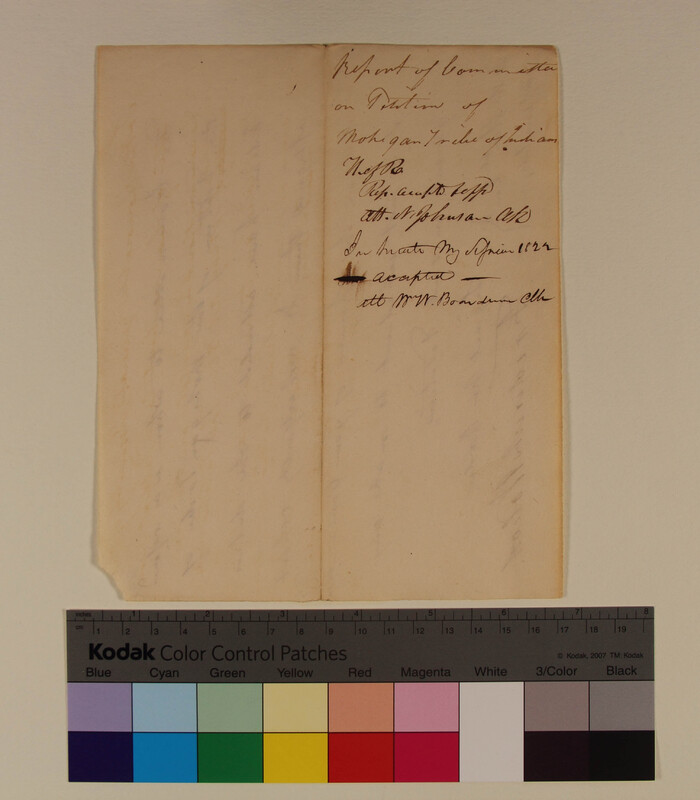 Report of Committee
on Petition of
Mohegan Tribe of Indians
H. of R
Rep. accepted
att. N. Johnson Clk
In Senate My Session 1822
accepted —
att Wm W. Boardman Clk
inches 1 2 3 4 5 6 7 8
cm 1 2 3 4 5 6 7 8 9 10 11 12 13 14 15 16 17 18 19
Kodak Color Control Patches
© Kodak, 2007 TM: Kodak
Blue Cyan Green Yellow Red Magenta White 3/Color Black